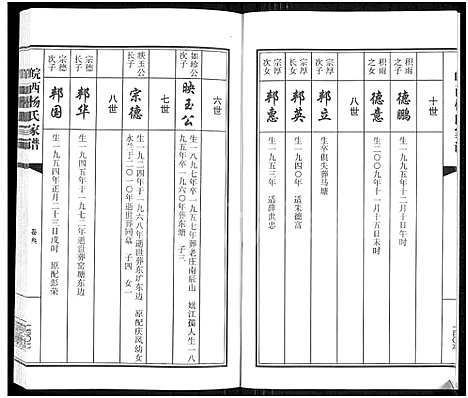 十世
积雨之子 德鹏 生一九九五年十二月十日午时
积雨之女 德意 生二〇〇九年十一月十五日未时
八世
宗厚次子 邦立 生卒俱失葬马塘
宗厚 邦英 生一九五〇年 适朱德富
宗厚 邦惠 生一九五三年 适薛世忠
六世
如珍公次子 映玉公 生一八八七年卒一九五七年葬老庄南辰山 娘江孺人生一八
九五年卒一九六〇年葬东塘 子三
七世
映玉公长子 宗德 生一九二四年于一九六八年逝世葬东圹东边 原配庆凤幼女
永兰于二〇一〇年逝世葬同墓 子四 女一
八世
宗德长子 邦华 生一九四五年于一九七二年逝世葬窑塘东边
宗德次子 邦国 生一九五四年正月二十三日戌时 原配彭荣
皖西杨氏家谱
卷